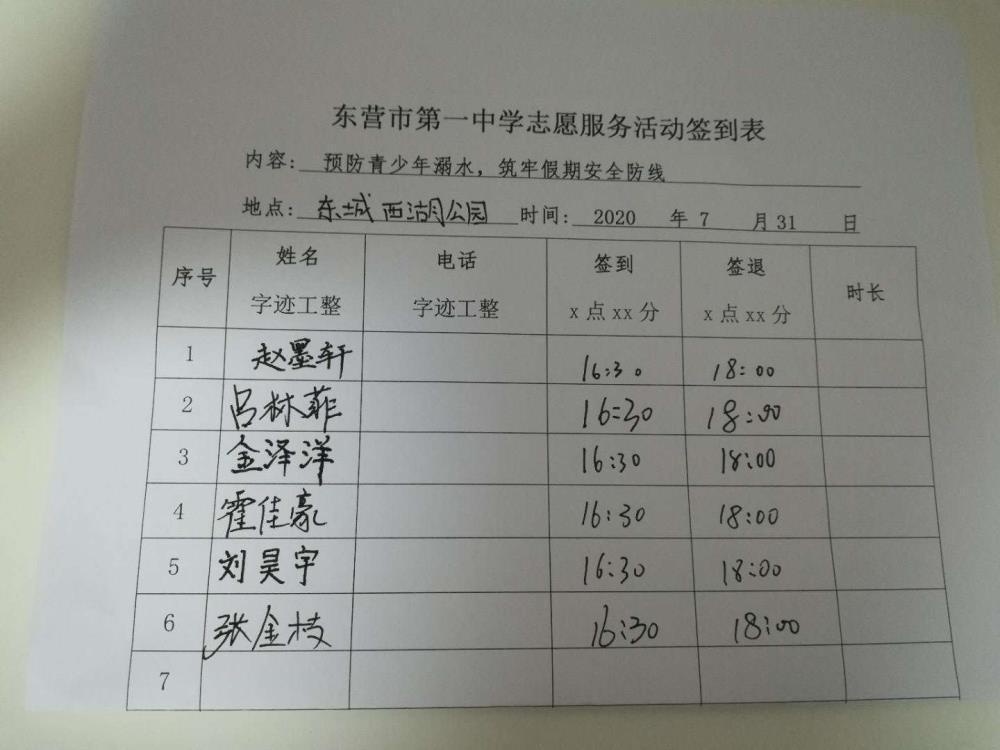 东营市第一中学志愿服务活动签到表
内容: 预防青少年溺水，筑牢假期安全防线
地点: 东城西湖公园 时间: 2020 年 7 月 31 日
序号 姓名 字迹工整 电话 字迹工整 签到 x点xx分 签退 x点xx分 时长
1 赵墨轩 16:30 18:00
2 吕林菲 16:30 18:00
3 金泽洋 16:30 18:00
4 霍佳豪 16:30 18:00
5 刘昊宇 16:30 18:00
6 张金枝 16:30 18:00
7